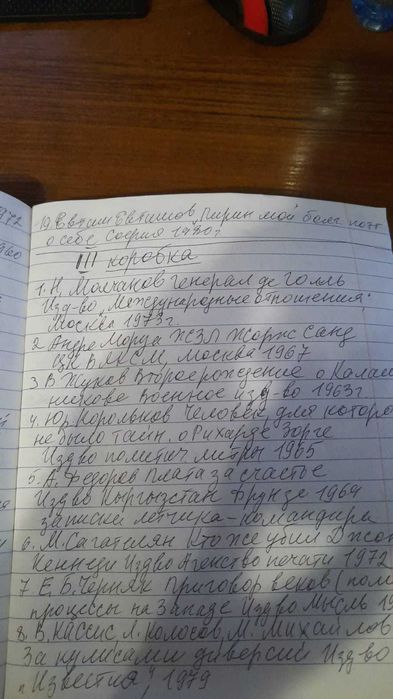 1972
1960
19. Евтим Евтимов, Пирин мой болг. поэт
о себе София 1980 г
III коровка
1. Н. Молчанов генерал де Голль
Изд-во „Международные отношения"
Москва 1973 г.
2. Андре Моруа ЖЗЛ Жорж Санд
ЦК ВЛКСМ, Москва 1967
3 В. Жуков Второе рождение о Калаш
никове Военное изд-во 1963 г
4. Юр. Корольков Человек, для которо
не было тайн. о Рихарде Зорге
Изд-во политич литры 1965
5. А. Федоров Плата за счастье
Изд-во Кыргызстан Фрунзе 1964
записки летчика-командира
6. М. Сагателян Кто же убил Джон
Кеннеди Изд-во Агенство печати 1972
7 Е. Б. Черняк Приговор веков (пол
процессы на Западе Изд-во Мысль 19
8. В. Кассис, Л. Колосов, М. Михайлов
За кулисами диверсий Изд-во
„Известия", 1979